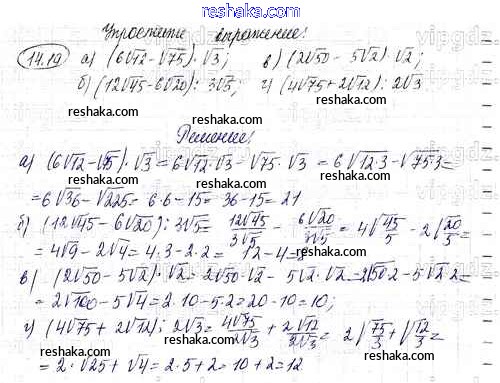 reshak.ru
Упростите выражение:
14.19 а) (6√12-√75)·√3; в) (2√50 - 5√2)·√2;
б) (12√45-6√20):3√5; г) (4√75+2√12):2√3
Решение:
а) (6√12-√75)·√3=6√12·√3-√75·√3 =6√12·3-√75·3=
=6√36-√225= 6·6-15= 36-15= 21
б) (12√45-6√20):3√5= 12√45/3√5 - 6√20/3√5 = 4√45/5 - 2√20/5=
=4√9-2√4=4·3-2·2= 12-4=8
в) (2√50-5√2)·√2=2√50·√2- 5√2·√2=2√50·2-5√2·2=
=2√100-5√4=2·10-5·2=20-10=10;
г) (4√75+ 2√12):2√3= 4√75/2√3 + 2√12/2√3= 2√75/3+√12/3=
=2·√25+√4=2·5+2=10+2=12
reshaka.ru